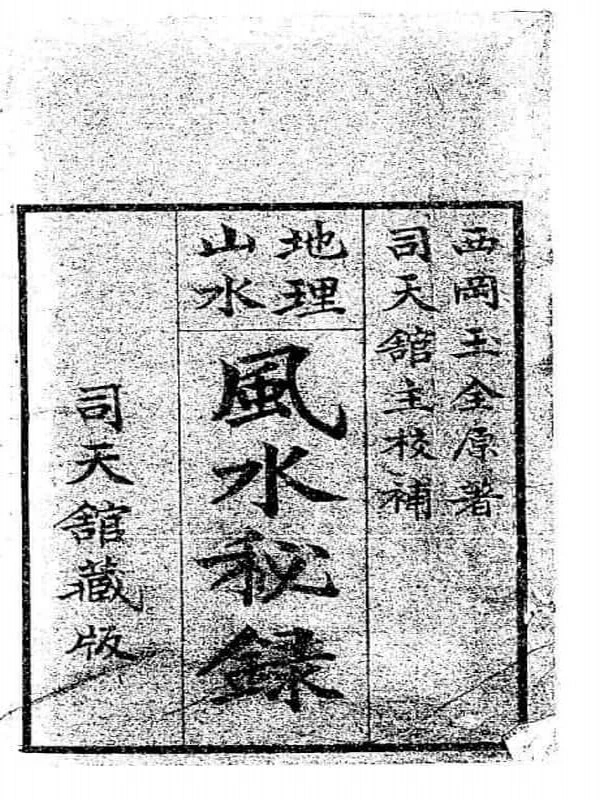 西岡玉全原著
司天舘主校補
地理
山水
風水秘録
司天舘藏版